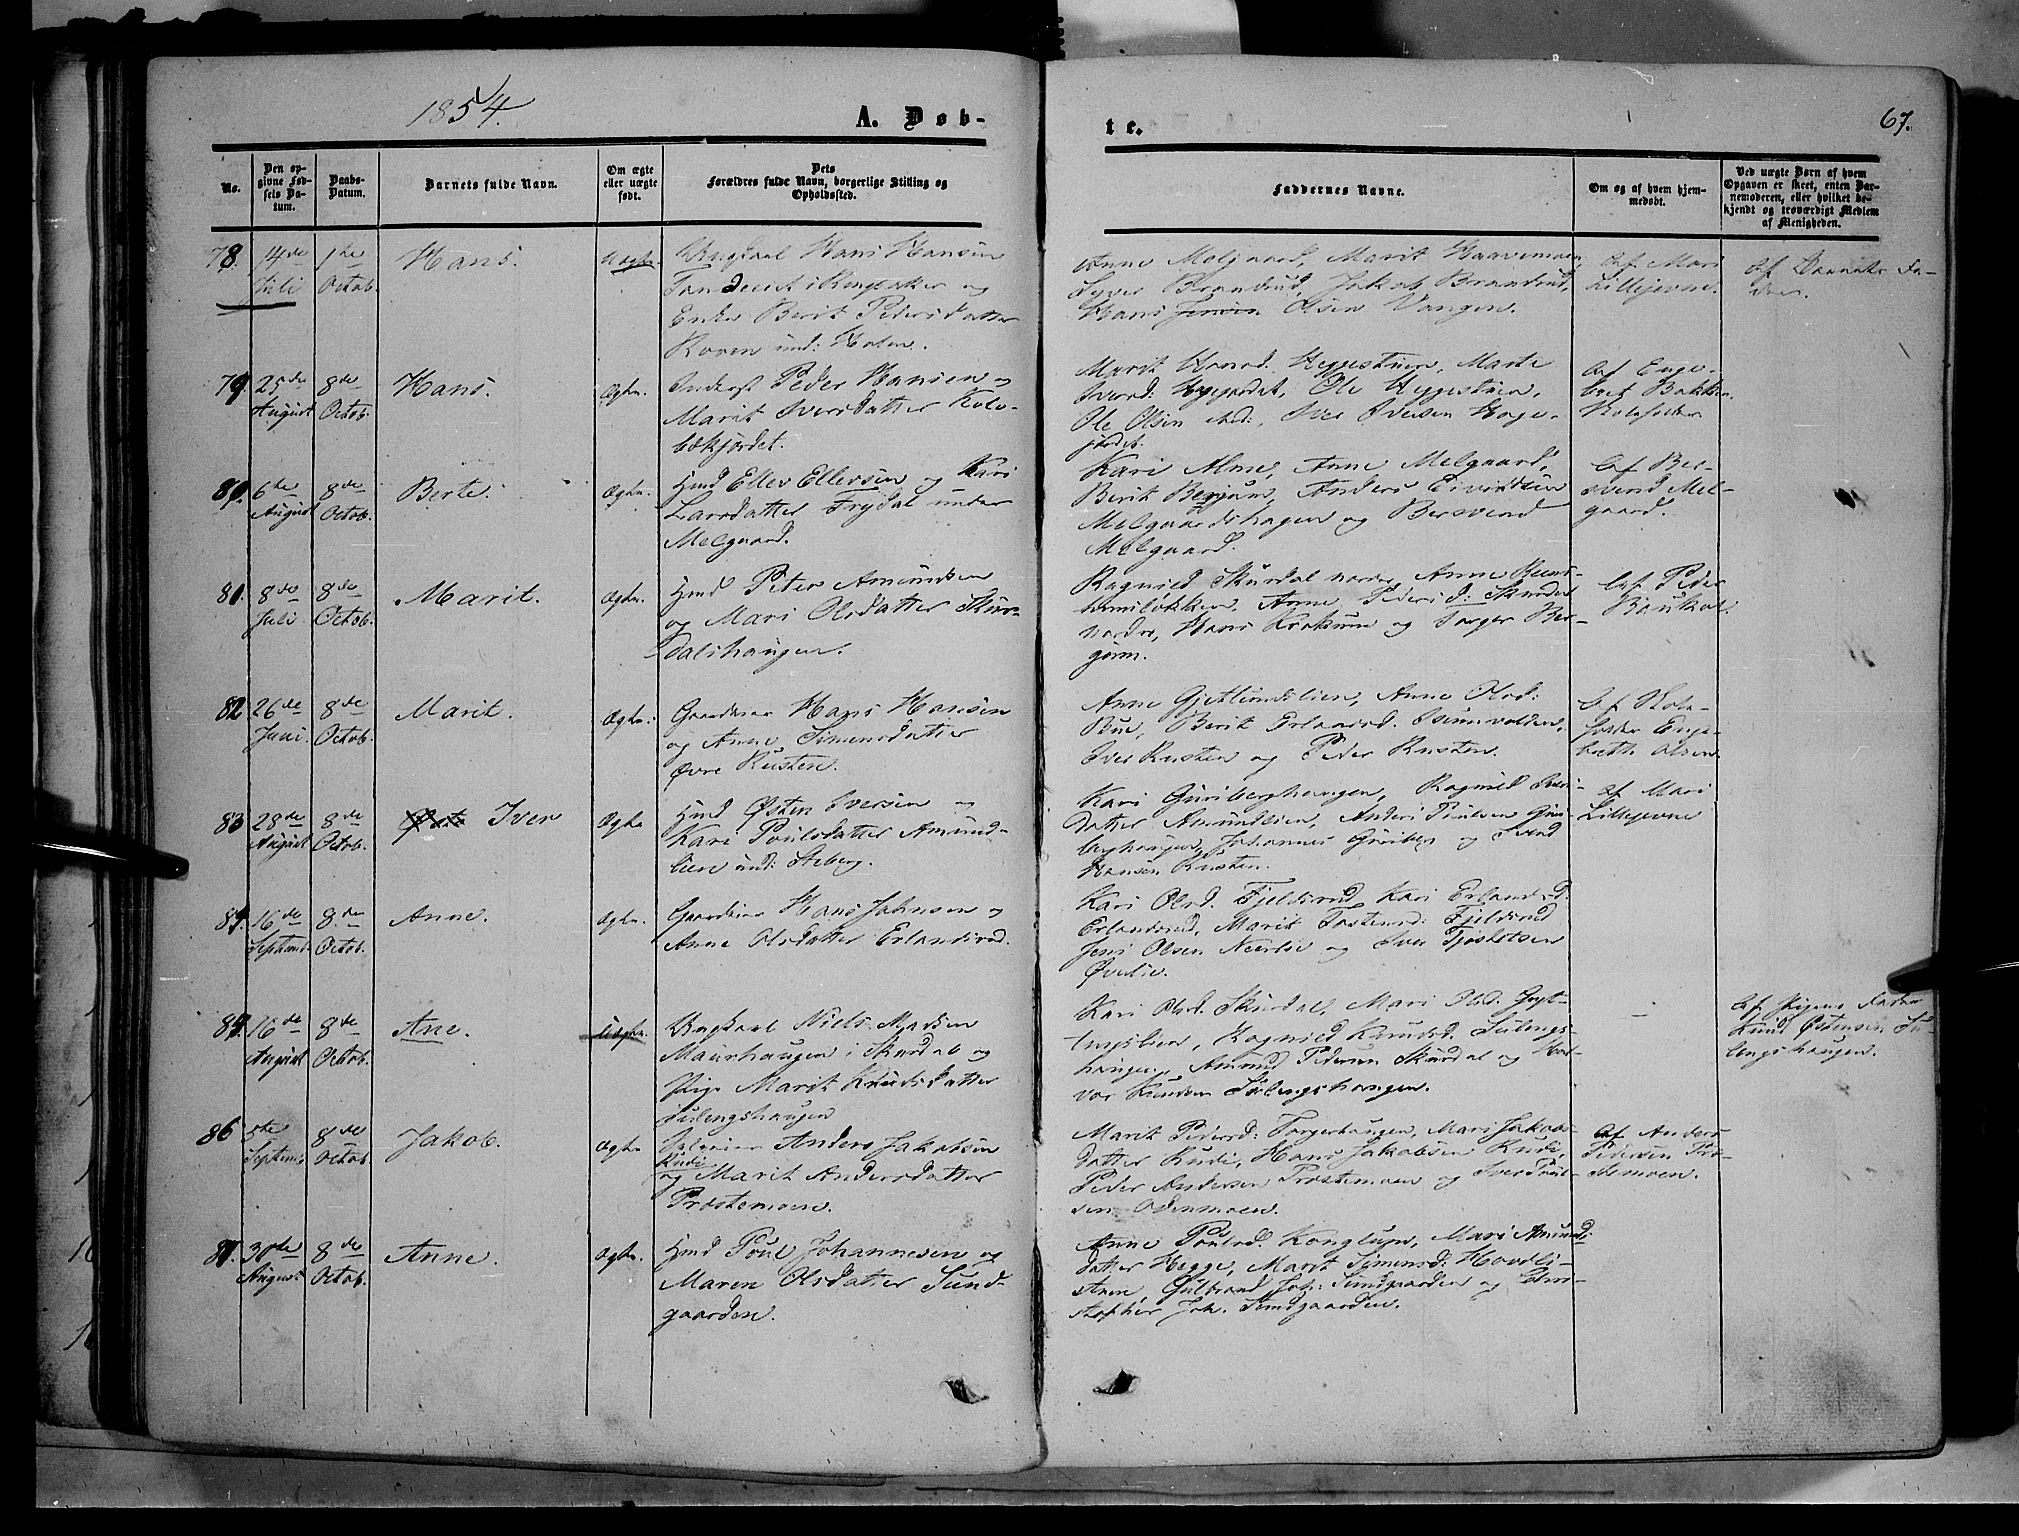 1854.
A. Døb-
te.
67.
No.
Den op-
givne Fød-
sels Da-
tum.
Daabs-
Datum.
Barnets fulde Navn.
Om ægte
eller uægte
født.
Dets
Forældres fulde Navn, borgerlige Stilling og
Opholdssted.
Faddernes Navne.
Om og af hvem hjem-
medøbt.
Ved uægte Børn af hvem
Opgaven er skeet, enten Bar-
nemoderen, eller hvilket be-
kjendt og troværdigt Medlem
af Menigheden.
78. 14de Juli
1ste Octob.
Hans.
Uægte.
Ungkarl Hans Hansen
i Ringebu og
Enke Berit Pedersdatter
und:
Anne Melgaard, Marit
Syver Brandrud, Jakob Brandrud,
Hans Olsen Vangen.
af Mari
Lillejevne.
af Barnets Fa-
der.
79. 25de August
8de Octob.
Hans.
Ægte.
Inderst Peder Hansen og
Marit Iversdatter Kolo-
bækjordet.
Marit Heggestuen, Marte
Iversd: Ole Heggestuen,
Ole Olsen Iver Iversen Hage-
jordet.
af Enge-
bret Bakken
80. 6te August
8de Octob.
Berte.
Ægte.
Hmd Ellev Ellevsen og Kari
Larsdatter Frydal under
Melgaard.
Kari Alme, Anne Melgaard,
Berit Bergum, Anders Eivindsen
Melgaardshagen og Bersvend
Melgaard.
af Ber-
svend Mel-
gaard.
81. 8de Juli
8de Octob.
Marit.
Ægte.
Hmd Peter Amundsen
og Mari Olsdatter Skur-
dalshaugen.
Ragnild Skurdal nordre, Anne
Anne Pedersd: Skurdal
nordre, Hans og Torger Ber-
gum.
af Peder
82 26de Juni.
8de Octob.
Marit.
Ægte.
Gaardeier Hans Hansen
og Anne Simensdatter
Øvre Rusten.
Anne Gjetlundslien, Anne Olsd:
Bue, Berit Erlandsd.
Iver Rusten og Peder Rusten.
af
Enge-
bret Olsen
83 28de August
8de Octob.
Iver
Ægte
Hmd Østen Iversen og
Kari Poulsdatter Amund-
lien und: Steberg.
Kari Guriberghaugen, Ragnild Iver-
datter Amundlien, Anders Poulsen Guri-
berghaugen, Johannes Guriberg og Svend
Hansen Rusten.
af Mari
Lillejevne
84. 16de Septemb.
8de Octob.
Anne.
Ægte.
Gaardeier Hans Johnsen og
Anne Olsdatter Erlandsrud.
Kari Olsd. Fjeldsrud, Kari Erlandsd.
Erlandsrud, Marit Tostensd: Fjeldsrud
Jens Olsen Neerlie og Iver Tjøstelsen
Øverlie.
85. 16de August
8de Octob.
Ane.
Uægte.
Ungkarl Niels Madsen
Maurhaugen i Skurdal og
Pige Marit Knudsdatter
Sulengshaugen
Kari Olsd. Skurdal, Mari Olsd.
Ragnild Knudsd. Sulengs-
haugen, Amund Pedersen Skurdal og Hal-
vor Knudsen Sulengshaugen.
af Pigens Fader
Knud Østensen Su-
lengshaugen.
86 5te Septemb
8de Octob
Jakob.
Ægte
Anders Jakobsen
Rudi
og Marit Andersdatter
Prestemoen.
Marit Pedersd: Torgerhaugen, Mari Jakobs-
datter Rudi, Hans Jakobsen Rudi,
Peder Andersen Prestemoen og Iver Poul-
sen Odenmoen.
af Anders
Pedersen Pre-
stemoen.
87. 30te August
8de Octob.
Anne.
Ægte.
Hmd Poul Johannesen og
Maren Olsdatter Sund-
gaarden.
Anne Poulsd. Konglum, Mari Amunds-
datter Hegge, Marit Simensd: Hovdli-
stuen, Gulbrand Joh: Sundgaarden og Chri-
stopher Joh. Sundgaarden.